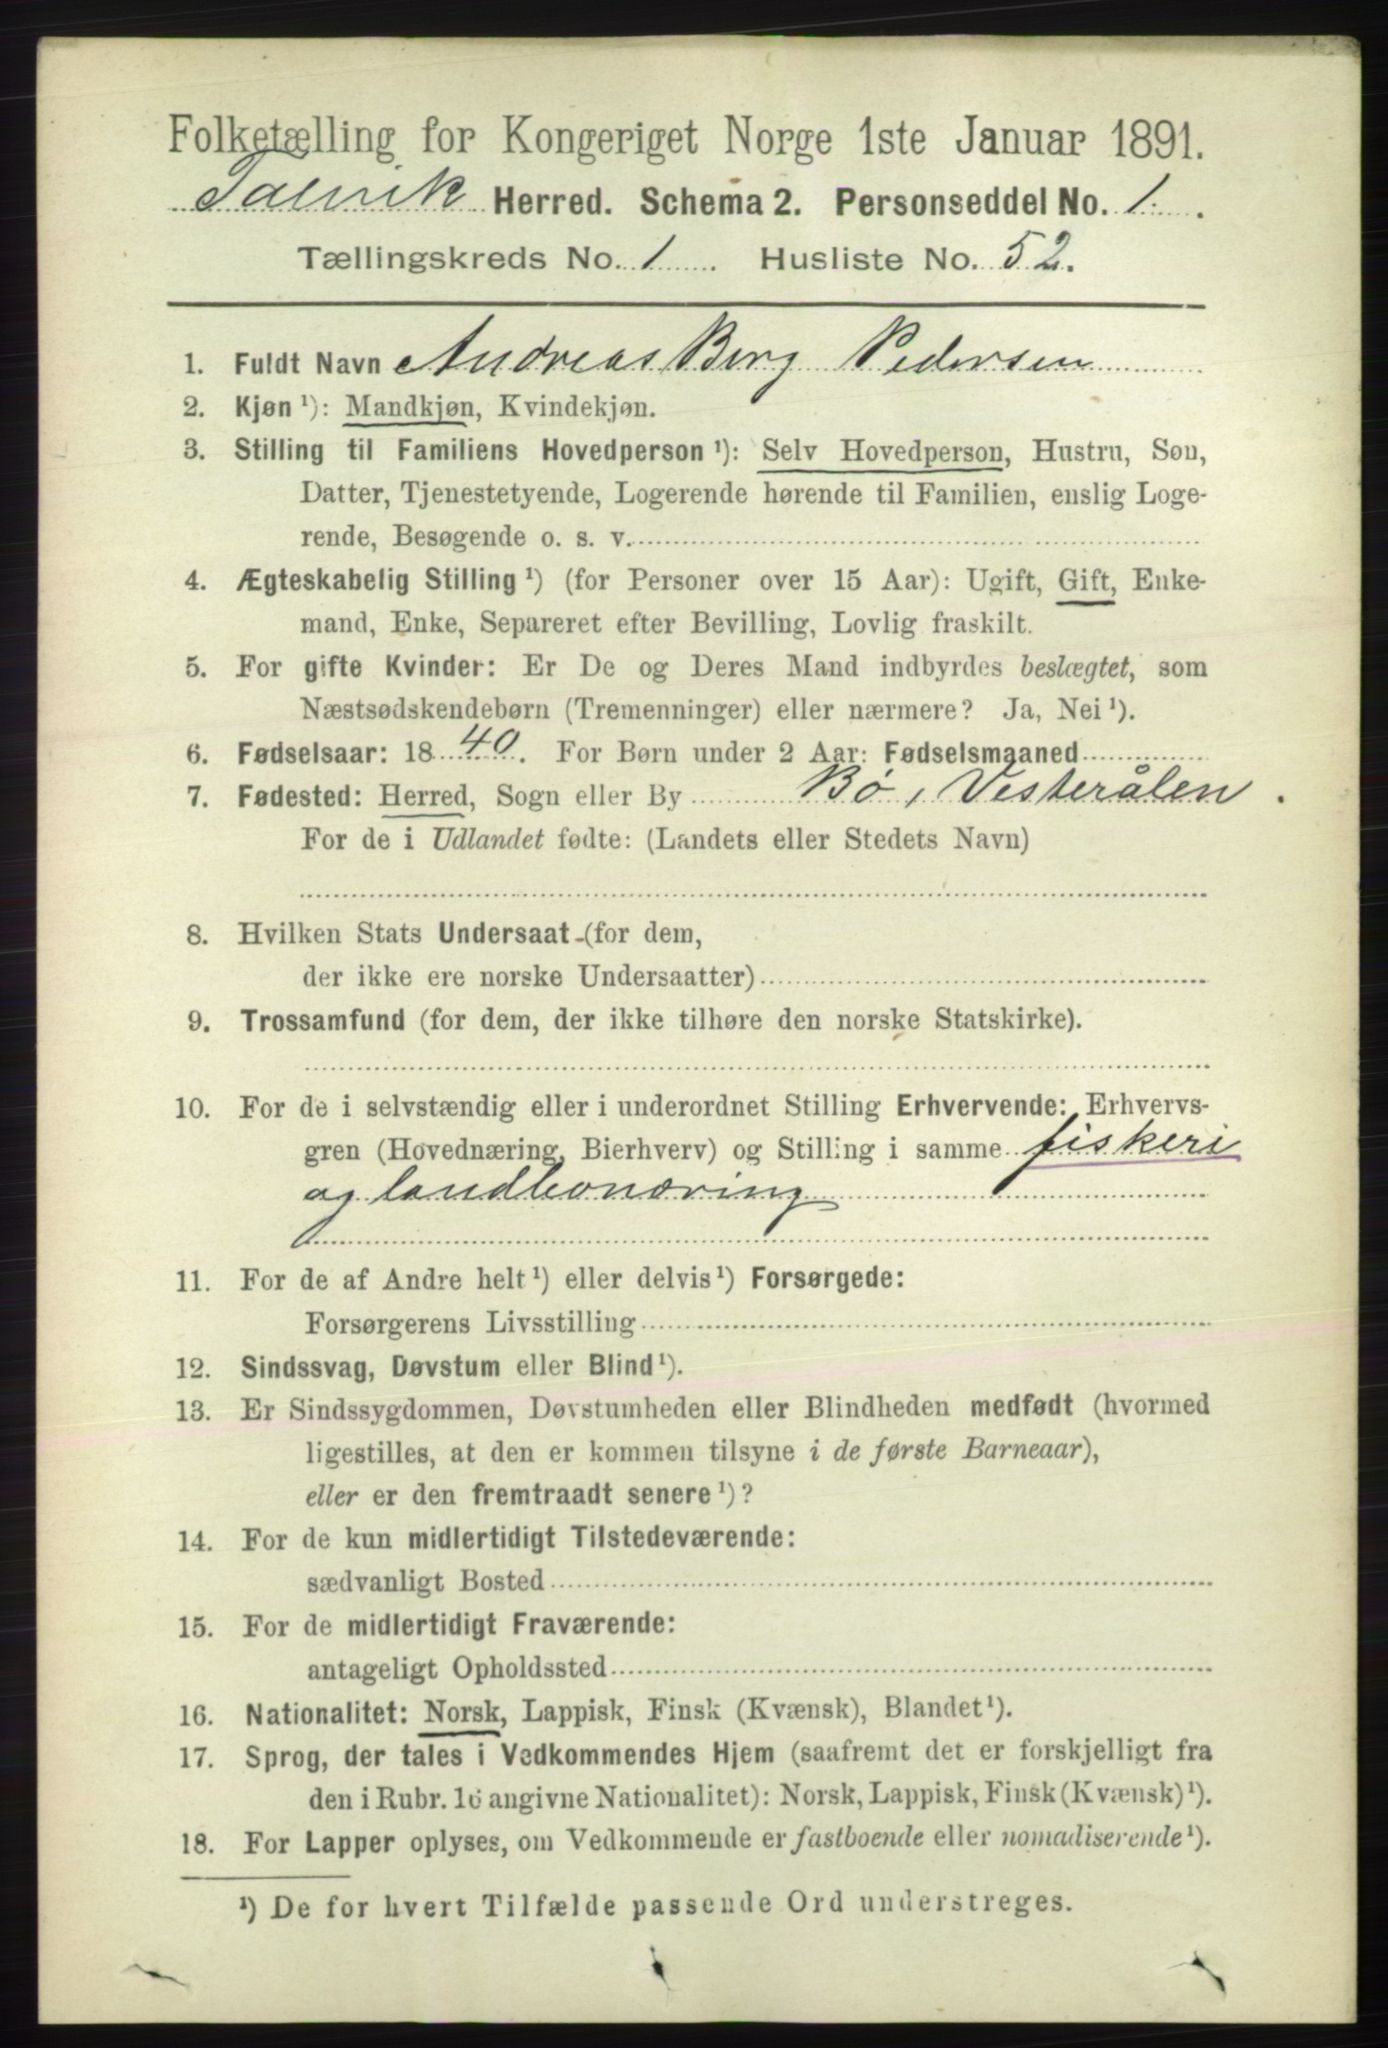 Folketælling for Kongeriget Norge 1ste Januar 1891.
Talvik Herred. Schema 2. Personseddel No. 1.
Tællingskreds No. 1. Husliste No. 52.
1. Fuldt Navn Andreas Berg Pedersen
2. Kjøn ¹): Mandkjøn, Kvindekjøn.
3. Stilling til Familiens Hovedperson ¹): Selv Hovedperson, Hustru, Søn,
Datter, Tjenestetyende, Logerende hørende til Familien, enslig Loge-
rende, Besøgende o. s. v.
4. Ægteskabelig Stilling ¹) (for Personer over 15 Aar): Ugift, Gift, Enke-
mand, Enke, Separeret efter Bevilling, Lovlig fraskilt.
5. For gifte Kvinder: Er De og Deres Mand indbyrdes beslægtet, som
Næstsødskendebørn (Tremenninger) eller nærmere? Ja, Nei ¹).
6. Fødselsaar: 1840. For Børn under 2 Aar: Fødselsmaaned
7. Fødested: Herred, Sogn eller By Bø, Vesterålen.
For de i Udlandet fødte: (Landets eller Stedets Navn)
8. Hvilken Stats Undersaat (for dem,
der ikke ere norske Undersaatter)
9. Trossamfund (for dem, der ikke tilhøre den norske Statskirke).
10. For de i selvstændig eller i underordnet Stilling Erhvervende: Erhvervs-
gren (Hovednæring, Bierhverv) og Stilling i samme fiskeri
og landbonæring
11. For de af Andre helt ¹) eller delvis ¹) Forsørgede:
Forsørgerens Livsstilling
12. Sindssvag, Døvstum eller Blind ¹).
13. Er Sindssygdommen, Døvstumheden eller Blindheden medfødt (hvormed
ligestilles, at den er kommen tilsyne i de første Barneaar),
eller er den fremtraadt senere ¹)?
14. For de kun midlertidigt Tilstedeværende:
sædvanligt Bosted
15. For de midlertidigt Fraværende:
antageligt Opholdssted
16. Nationalitet: Norsk, Lappisk, Finsk (Kvænsk), Blandet ¹).
17. Sprog, der tales i Vedkommendes Hjem (saafremt det er forskjelligt fra
den i Rubr. 16 angivne Nationalitet): Norsk, Lappisk, Finsk (Kvænsk) ¹).
18. For Lapper oplyses, om Vedkommende er fastboende eller nomadiserende ¹).
¹) De for hvert Tilfælde passende Ord understreges.